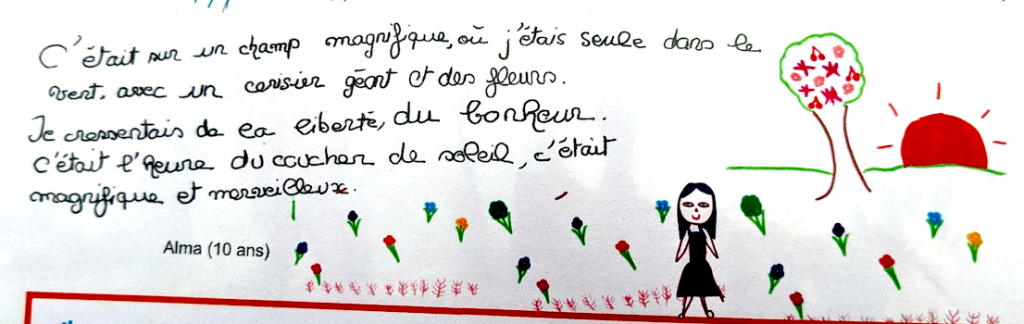 C'était sur un champ magnifique, où j'étais seule dans le
vent, avec un cerisier géant et des fleurs.
Je ressentais de la liberté, du bonheur.
C'était l'heure du coucher de soleil, c'était
magnifique et merveilleux.
Alma (10 ans)